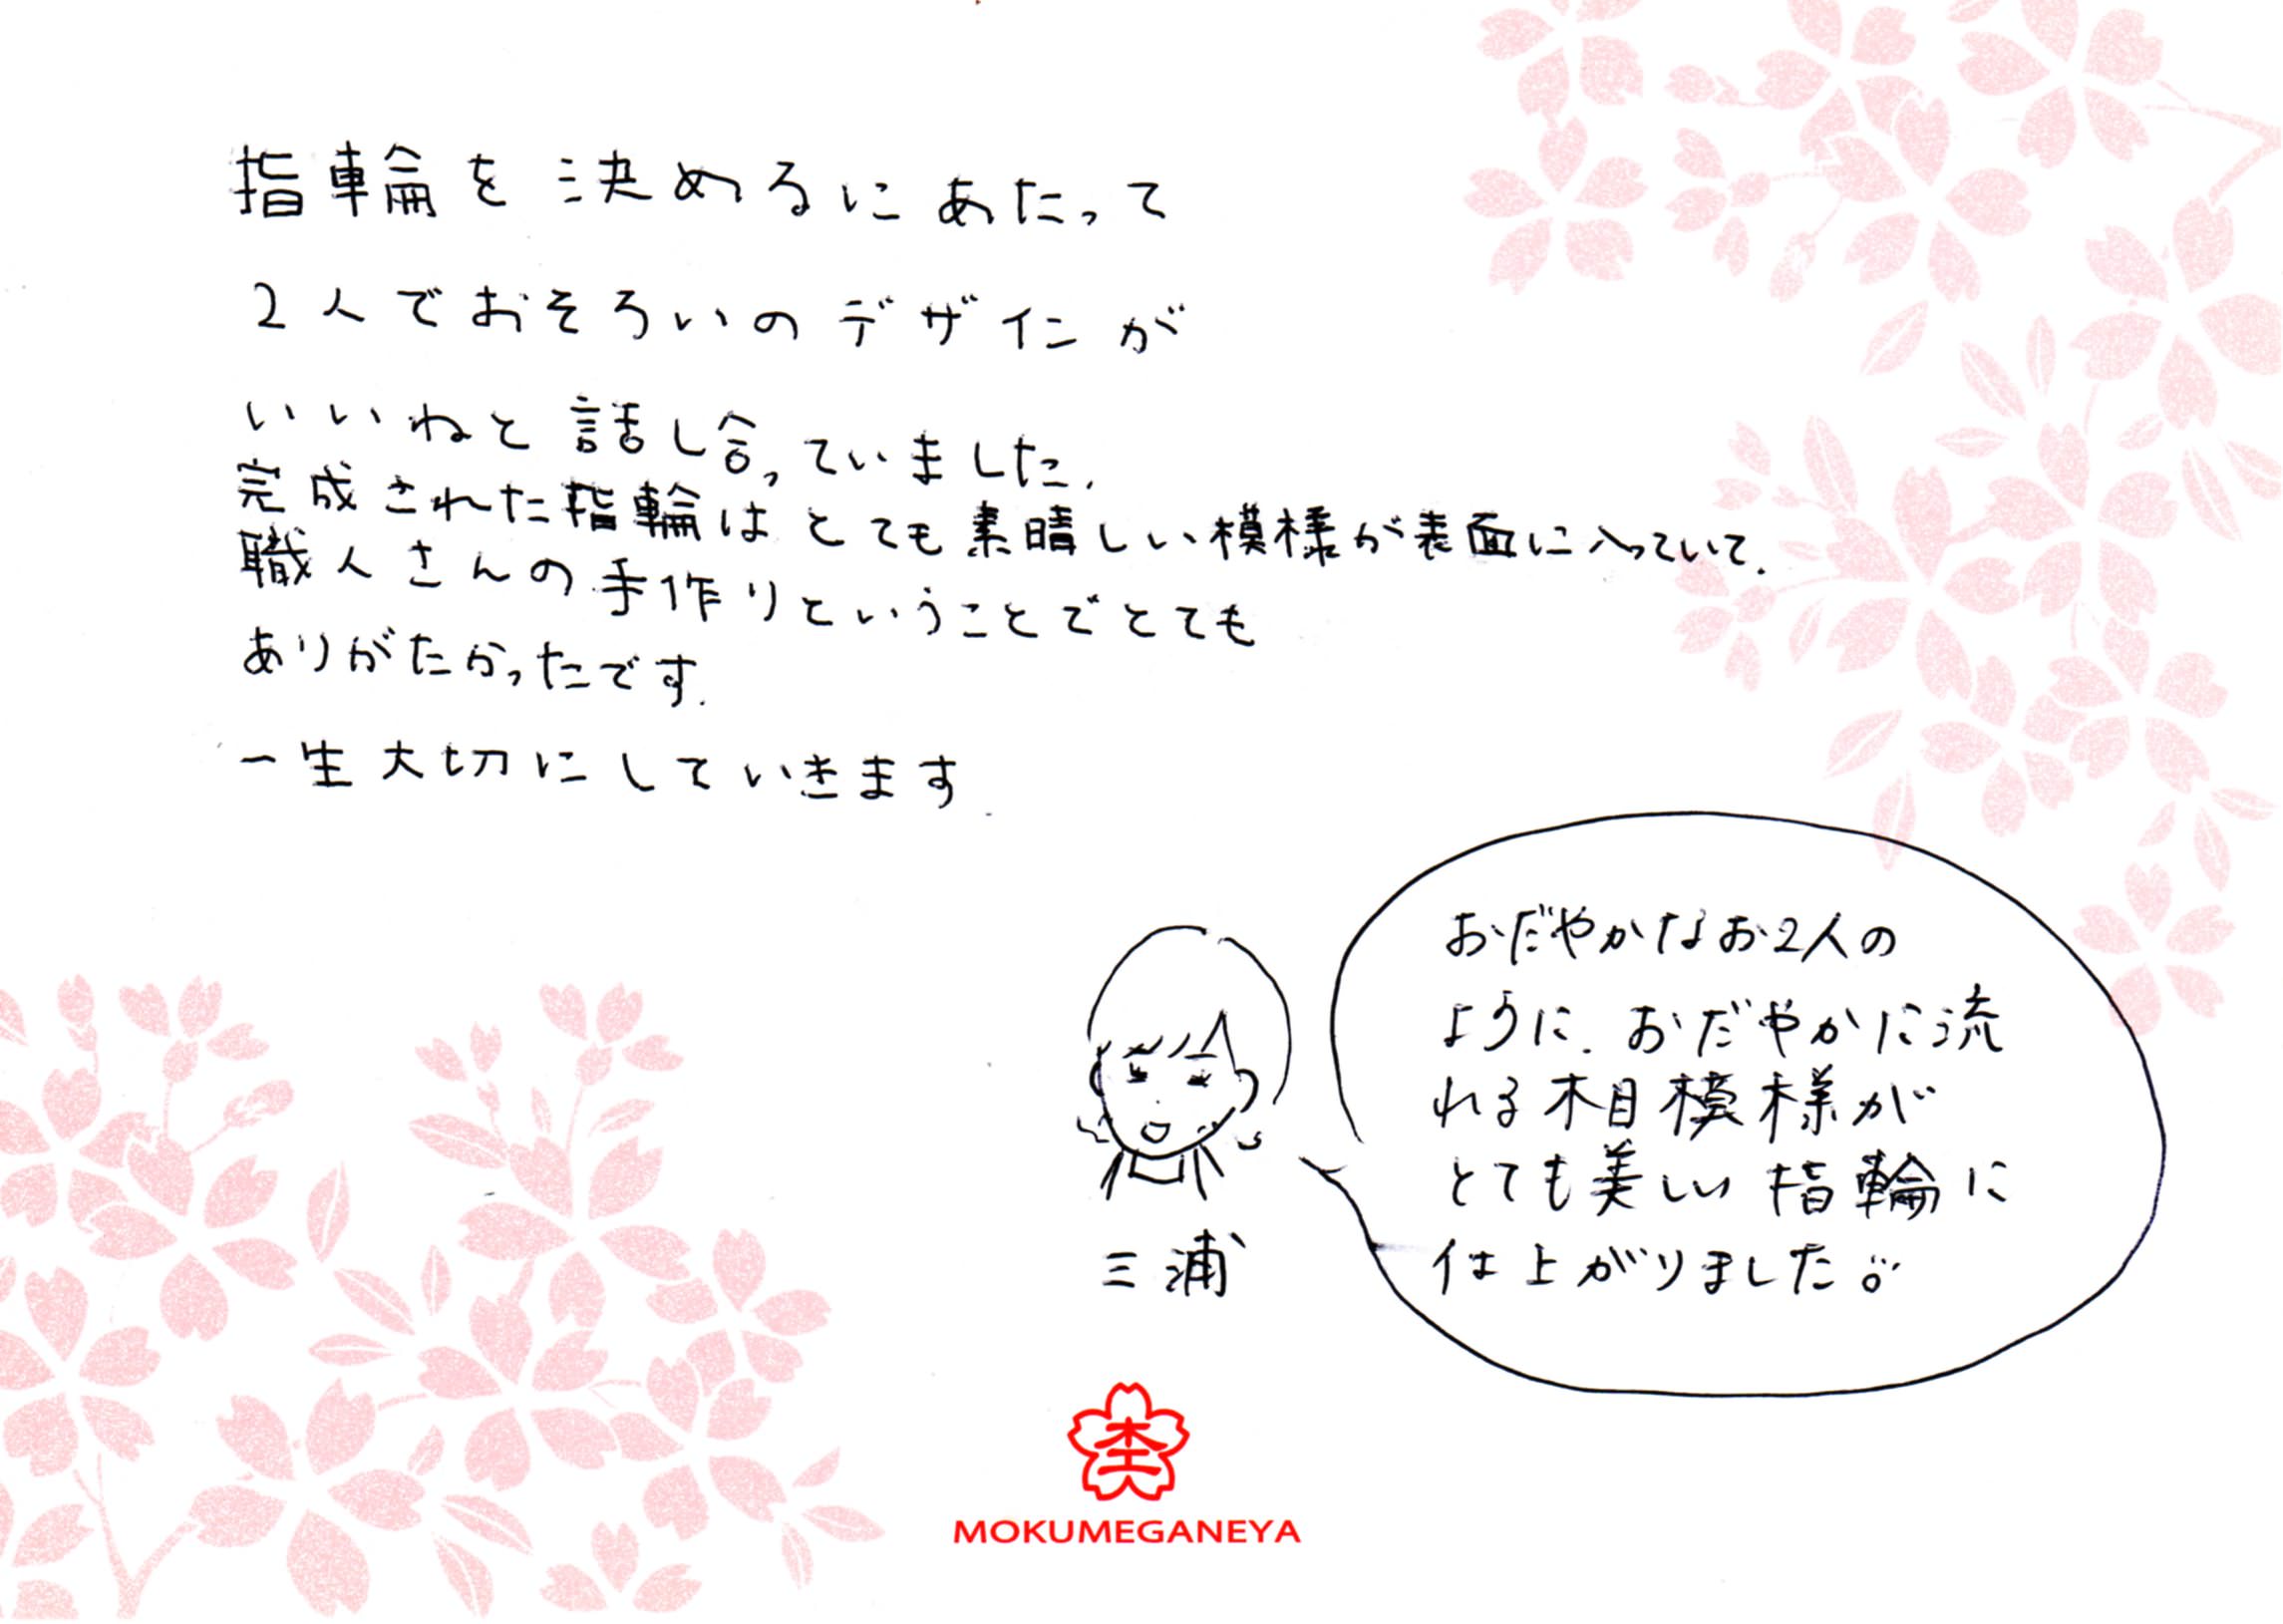 指輪を決めるにあたって
2人でおそろいのデザインが
いいねと話し合っていました.
完成された指輪はとても素晴しい模様が表面に入っていて.
職人さんの手作りということでとても
ありがたかったです.
一生大切にしていきます.
おだやかなお2人の
ように.おだやかに流
れる木目模様が
とても美しい指輪に
仕上がりました
三浦
MOKUMEGANEYA